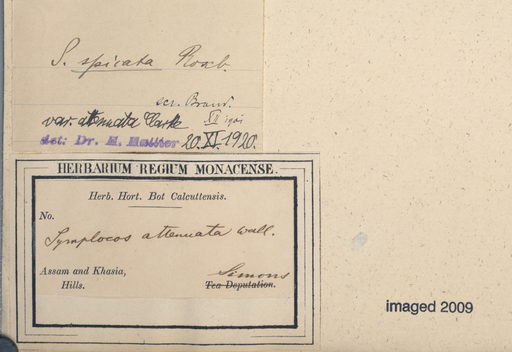 S. spicata Roxb.
scr. Brand.
var. attenuata Clarke XII 1901
det: Dr. H. Hallier 20.XI.1920.
HERBARIUM REGIUM MONACENSE.
Herb. Hort. Bot Calcuttensis.
No.
Symplocos attenuata Wall.
Assam and Khasia, Simons
Hills. Tea Deputation.
imaged 2009